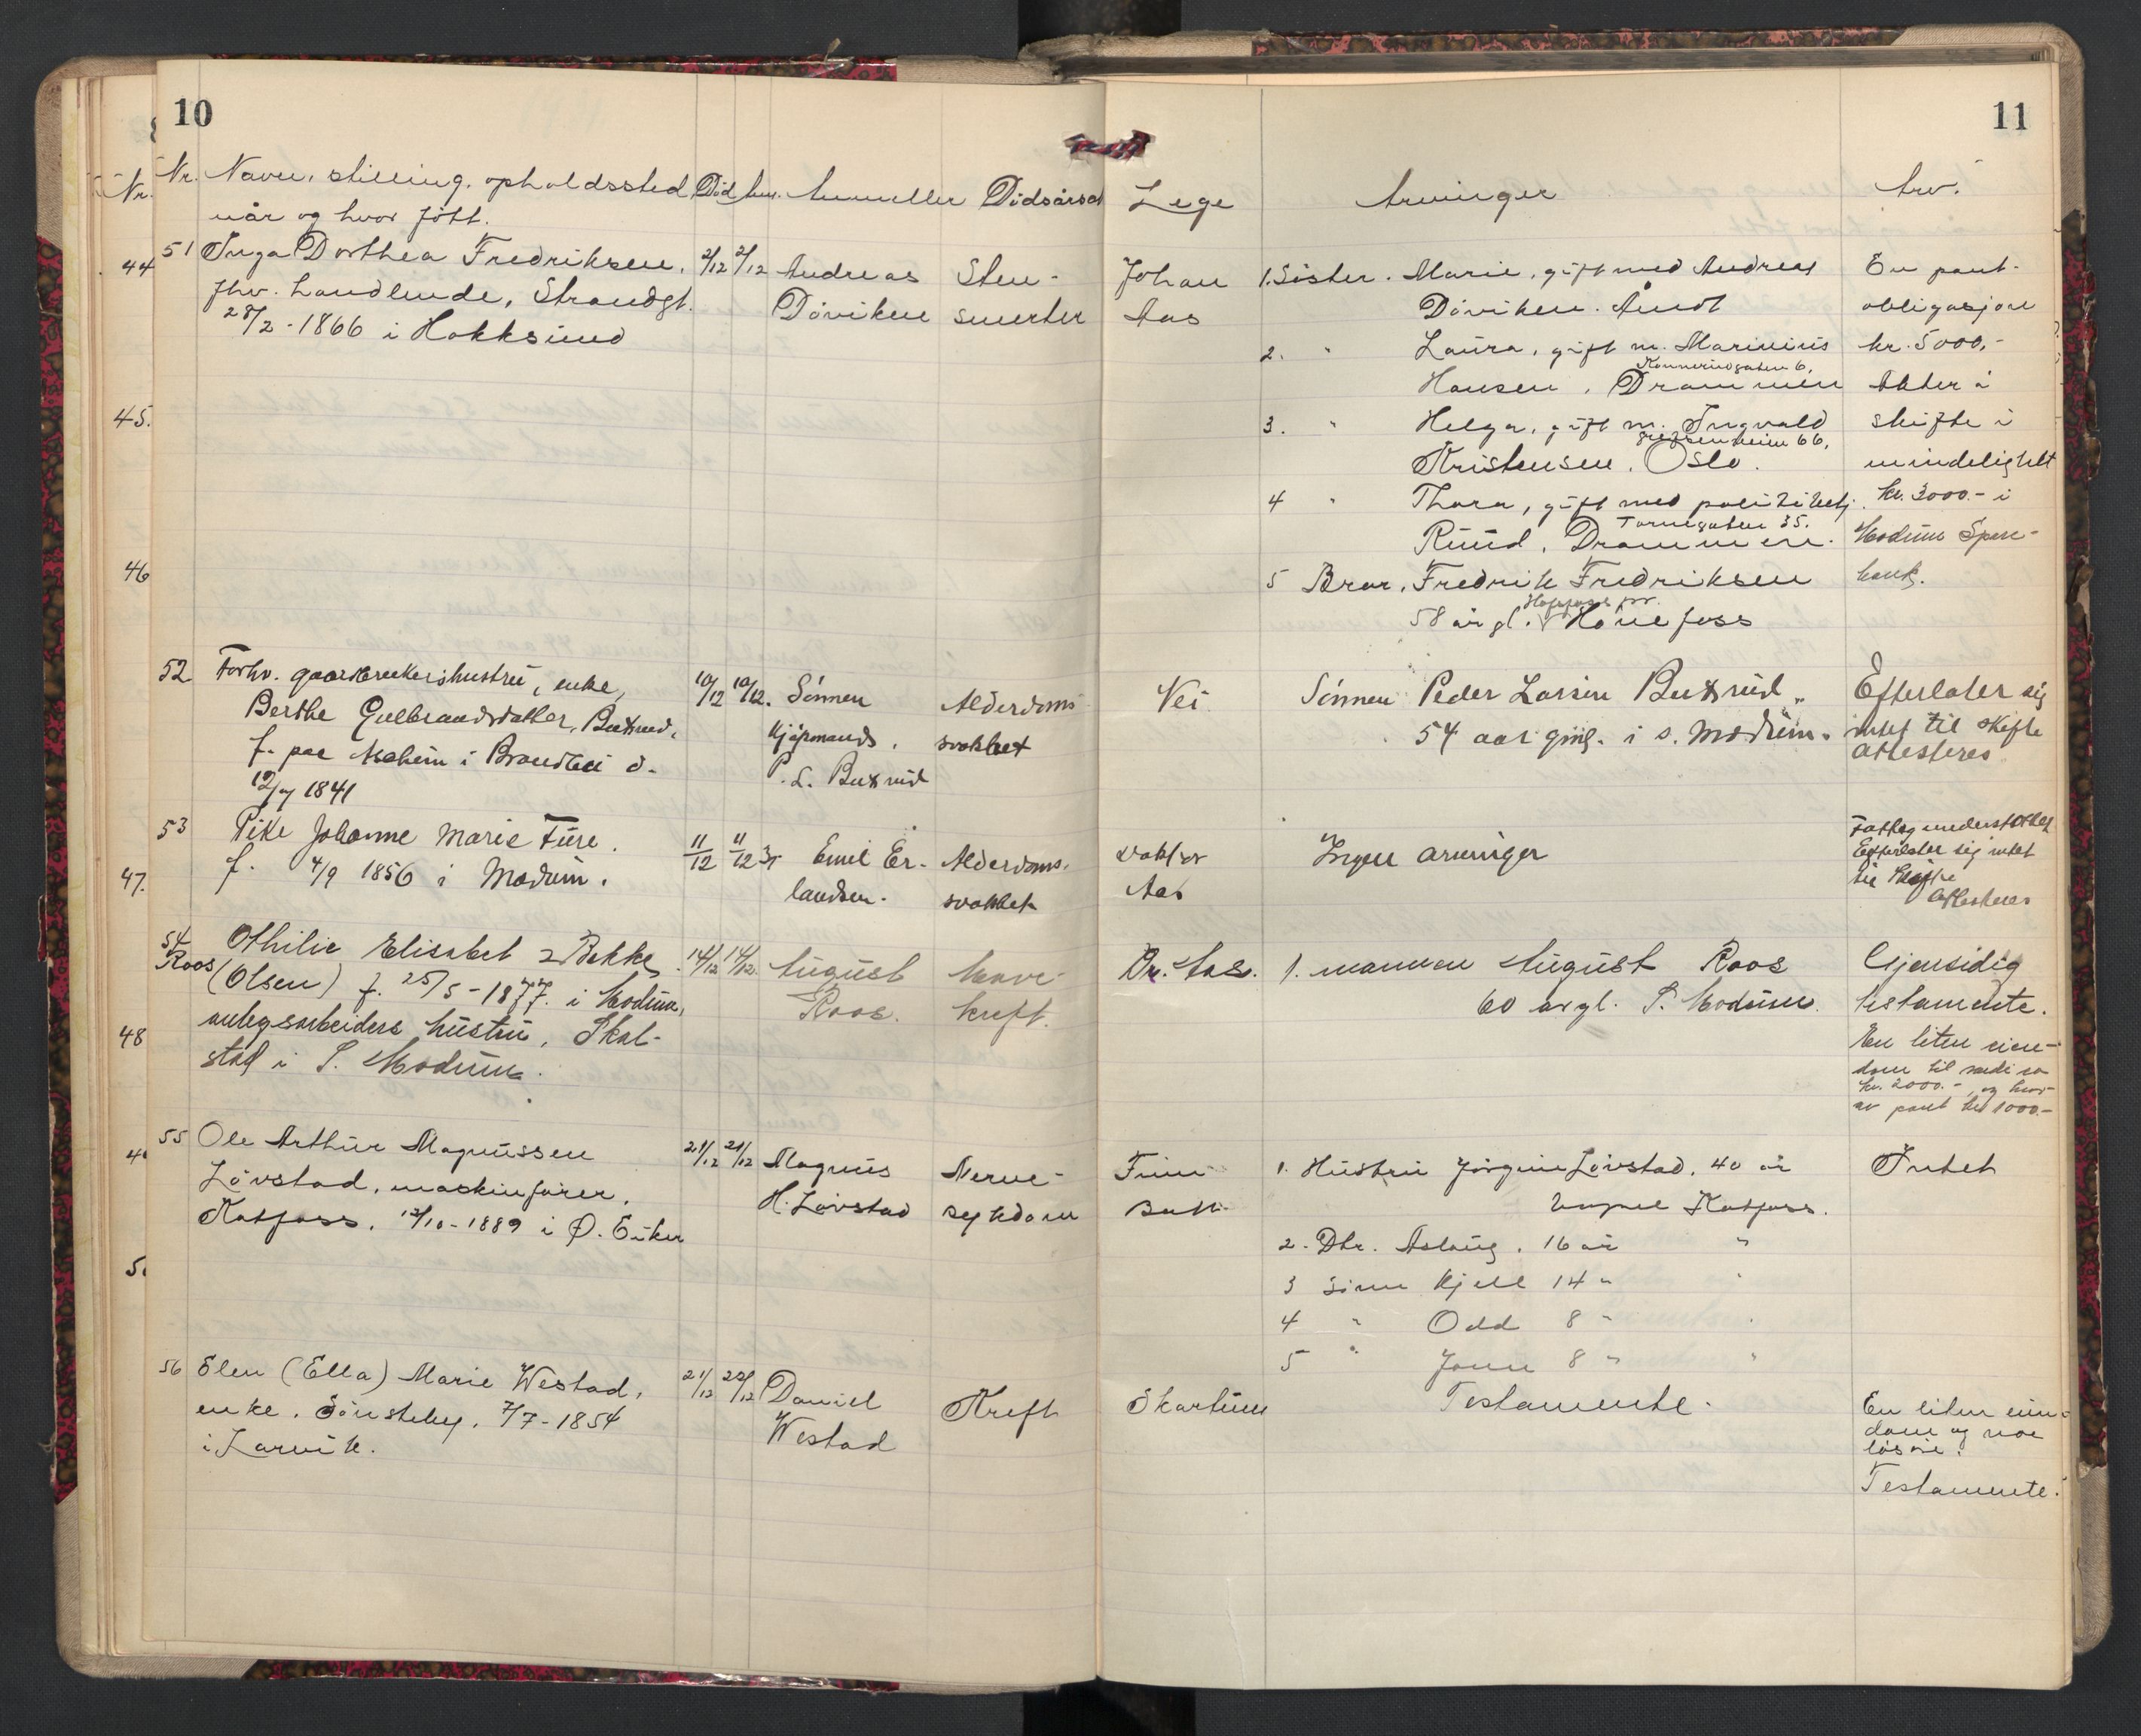 10
Nr. Navn, stilling, opholdssted Död Anm. Anmelder Dödsårsak
når og hvor født.
51 Inga Dorthea Fredriksen, 2/12 2/12 Andreas Sten-
fhv. handlende, Strandgt. Döviken smerter
28/2 - 1866 i Hokksund
52 Forhv. gaardbrukerhustru, enke, 10/12 10/12. Sönnen Alderdoms
Berthe Gulbrandsdatter, Buxrud, kjöpmand, svakhet
f. paa Askeim i Brandbu d. P. L. Buxrud
1841
53 Pike Johanne Marie Fure. 11/12 11/12 Emil Er- Alderdoms.
f. 4/9 1856 i Modum. landsen. svakhet
54 Othilie Elisabet Bekke 14/12 14/12. August Mave-
Roos (Olsen) f. 25/5 - 1877. i Modum, Roos. kreft.
anlegsarbeiders hustru, Skal-
stad i S. Modum.
55 Ole Arthur Magnussen 21/12 21/12 Magnus Nerve-
Lövstad, maskinfører. H. Lövstad sykdom
Katfoss. 12/10 - 1889 i Ø. Eiker
56 Elen (Ella) Marie Westad, 21/12 22/12 Daniel Kreft
enke. Sönsteby. 7/7 - 1854 Westad
i Larvik.
Nr.
44
45.
46
47.
48
11
Lege Arvinger Arv.
Johan 1. Söster. Marie, gift med Andreas En pant-
Aas Döviken. Åmot obligasjon
2. " Laura, gift m. Marinius kr. 5000,-
Konnerudgaten 6,
Hansen, Drammen Akter å
3. " Helga, gift m. Ingvald skifte i
66,
Kristensen. Oslo. mindelighet
4 " Thora, gift med politibetj. kr. 3000.- i
Tornegaten 35.
Ruud, Drammen. Modum Spare-
5 Bror, Fredrik Fredriksen bank.
pr.
58 år gl. Hönefoss
Nei Sönnen Peder Larsen Buxrud, Efterlater sig
54 aar gml. i s. Modum. intet til skifte
attesteres
Fattigunderstøttet
Doktor Ingen arvinger Efterlater sig intet
Aas til skifte
Attesteres
Dr. Aas. 1. mannen August Roos Gjensidig
60 år gl. S. Modum. testamente.
En liten eien-
dom til verdi ca
kr. 2000.- og hvor-
av pant kr 1000.-
Finn 1. Hustru Jörgine Lövstad, 40 år Intet
Katfoss.
2. Dtr. Aslaug. 16 år "
3 Sönn Kjell 14 " "
4 " Odd 8 " "
5 " 8 " "
Skartum Testamente. En liten eien-
dom og noe
lösöre.
Testamente.